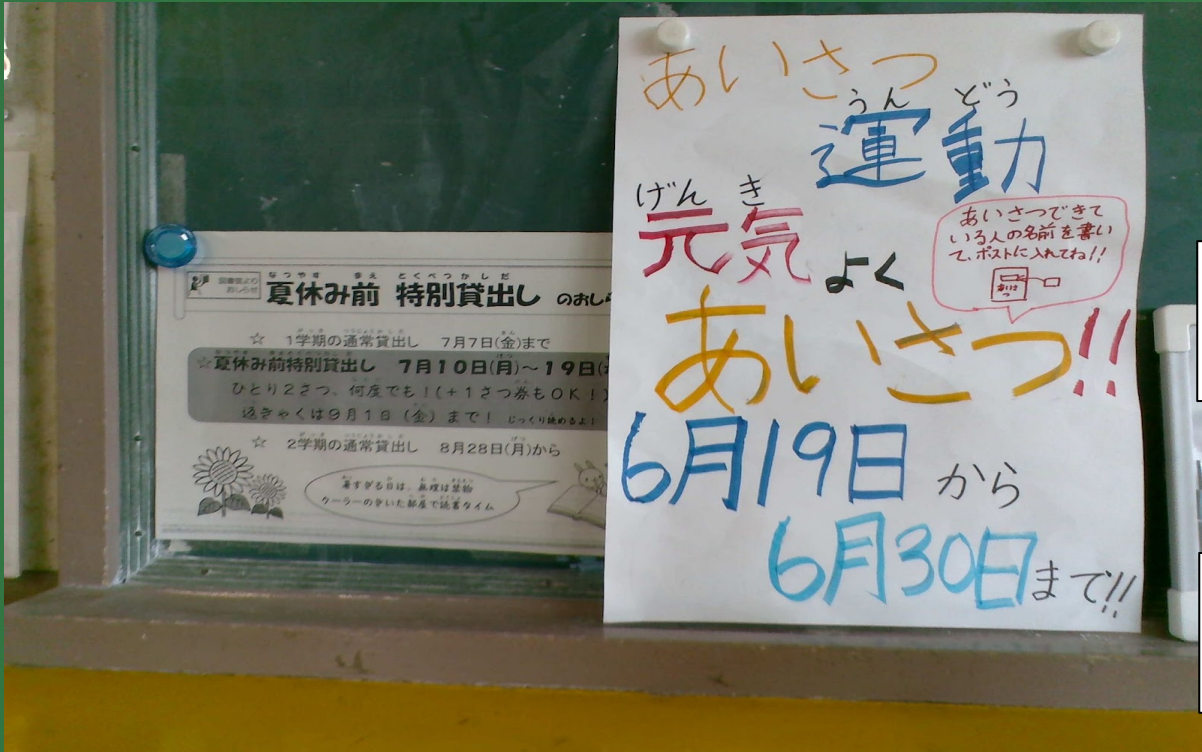 図書館より
おしらせ
なつやす まえ とくべつかしだ
夏休み前 特別貸出し のおしら
☆ 1学期の通常貸出し 7月7日(金)まで
☆夏休み前特別貸出し 7月10日(月)～19日(
ひとり2さつ、何度でも!(+1さつ券もOK!)
返きゃくは9月1日(金)まで! じっくり読めるよ!
☆ 2学期の通常貸出し 8月28日(月)から
暑すぎる日は、無理は禁物
クーラーの きいた部屋で読書タイム
あいさつ
うん どう
運動
げん き
元気よく
あいさつできて
いる人の名前を書い
て、ポストに入れてね!!
あいさつ!!
6月19日から
6月30日まで!!